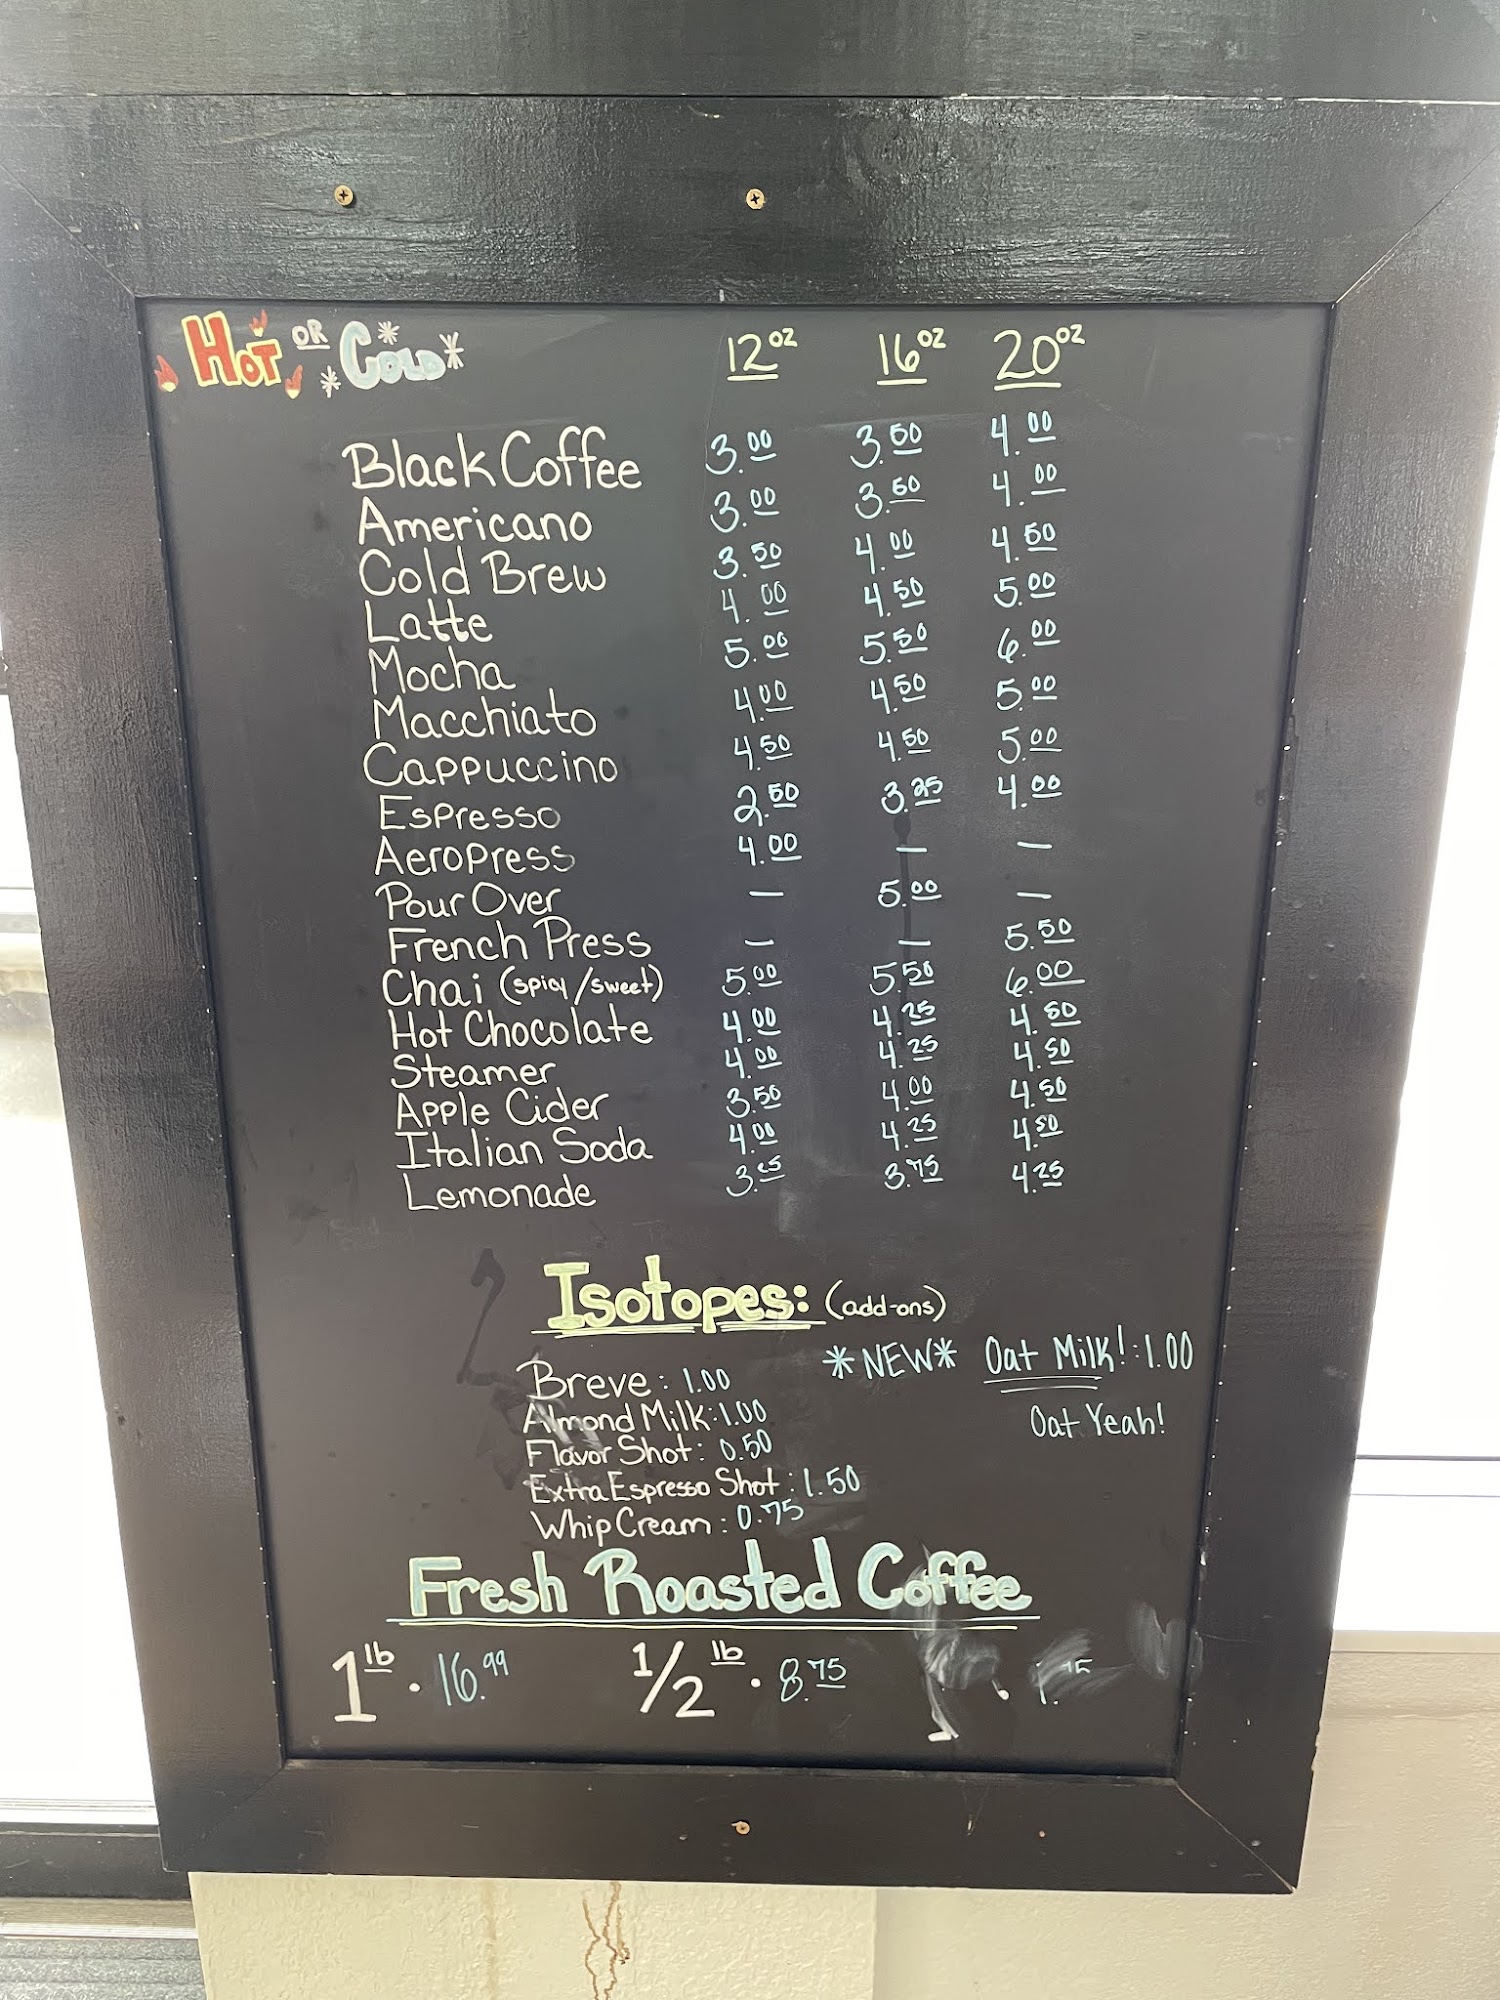 HOT OR COLD 12oz 16oz 20oz
Black Coffee 3.00 3.50 4.00
Americano 3.00 3.50 4.00
Cold Brew 3.50 4.00 4.50
Latte 4.00 4.50 5.00
Mocha 5.00 5.50 6.00
Macchiato 4.00 4.50 5.00
Cappuccino 4.50 4.50 5.00
Espresso 2.50 3.25 4.00
Aeropress 4.00 — —
Pour Over — 5.00 —
French Press — — 5.50
Chai (spicy/sweet) 5.00 5.50 6.00
Hot Chocolate 4.00 4.25 4.50
Steamer 4.00 4.25 4.50
Apple Cider 3.50 4.00 4.50
Italian Soda 4.00 4.25 4.50
Lemonade 3.75 4.25
Isotopes: (add-ons)
*NEW* Oat Milk!:1.00
Oat Yeah!
Breve: 1.00
Almond Milk:1.00
Flavor Shot: 0.50
Extra Espresso Shot: 1.50
Whip Cream: 0.75
Fresh Roasted Coffee
1 lb · 16.99 1/2 lb · 8.75